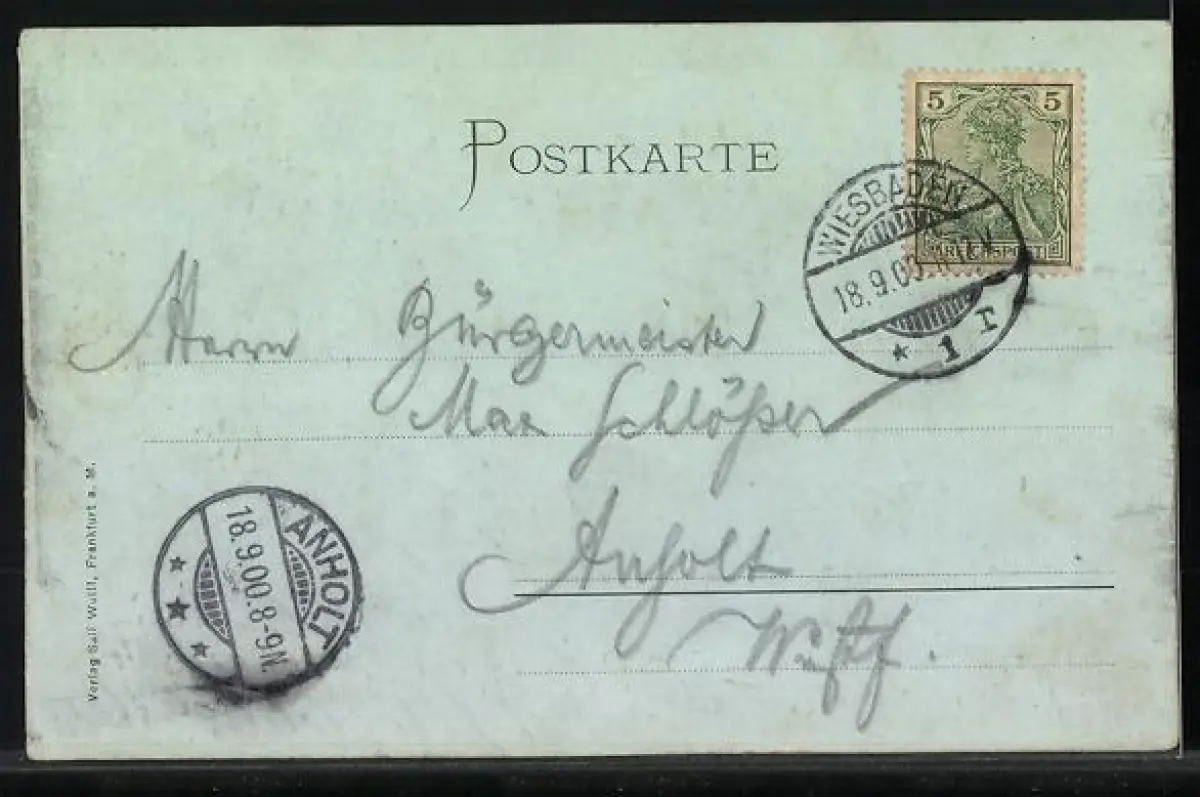 POSTKARTE
5 5
REICHSPOST
WIESBADEN
18.9.00.
* 1 r
Herrn Bürgermeister
Max Schlößer
Anholt
Westf.
ANHOLT
18.9.00.8-9N.
Verlag Frankfurt a. M.